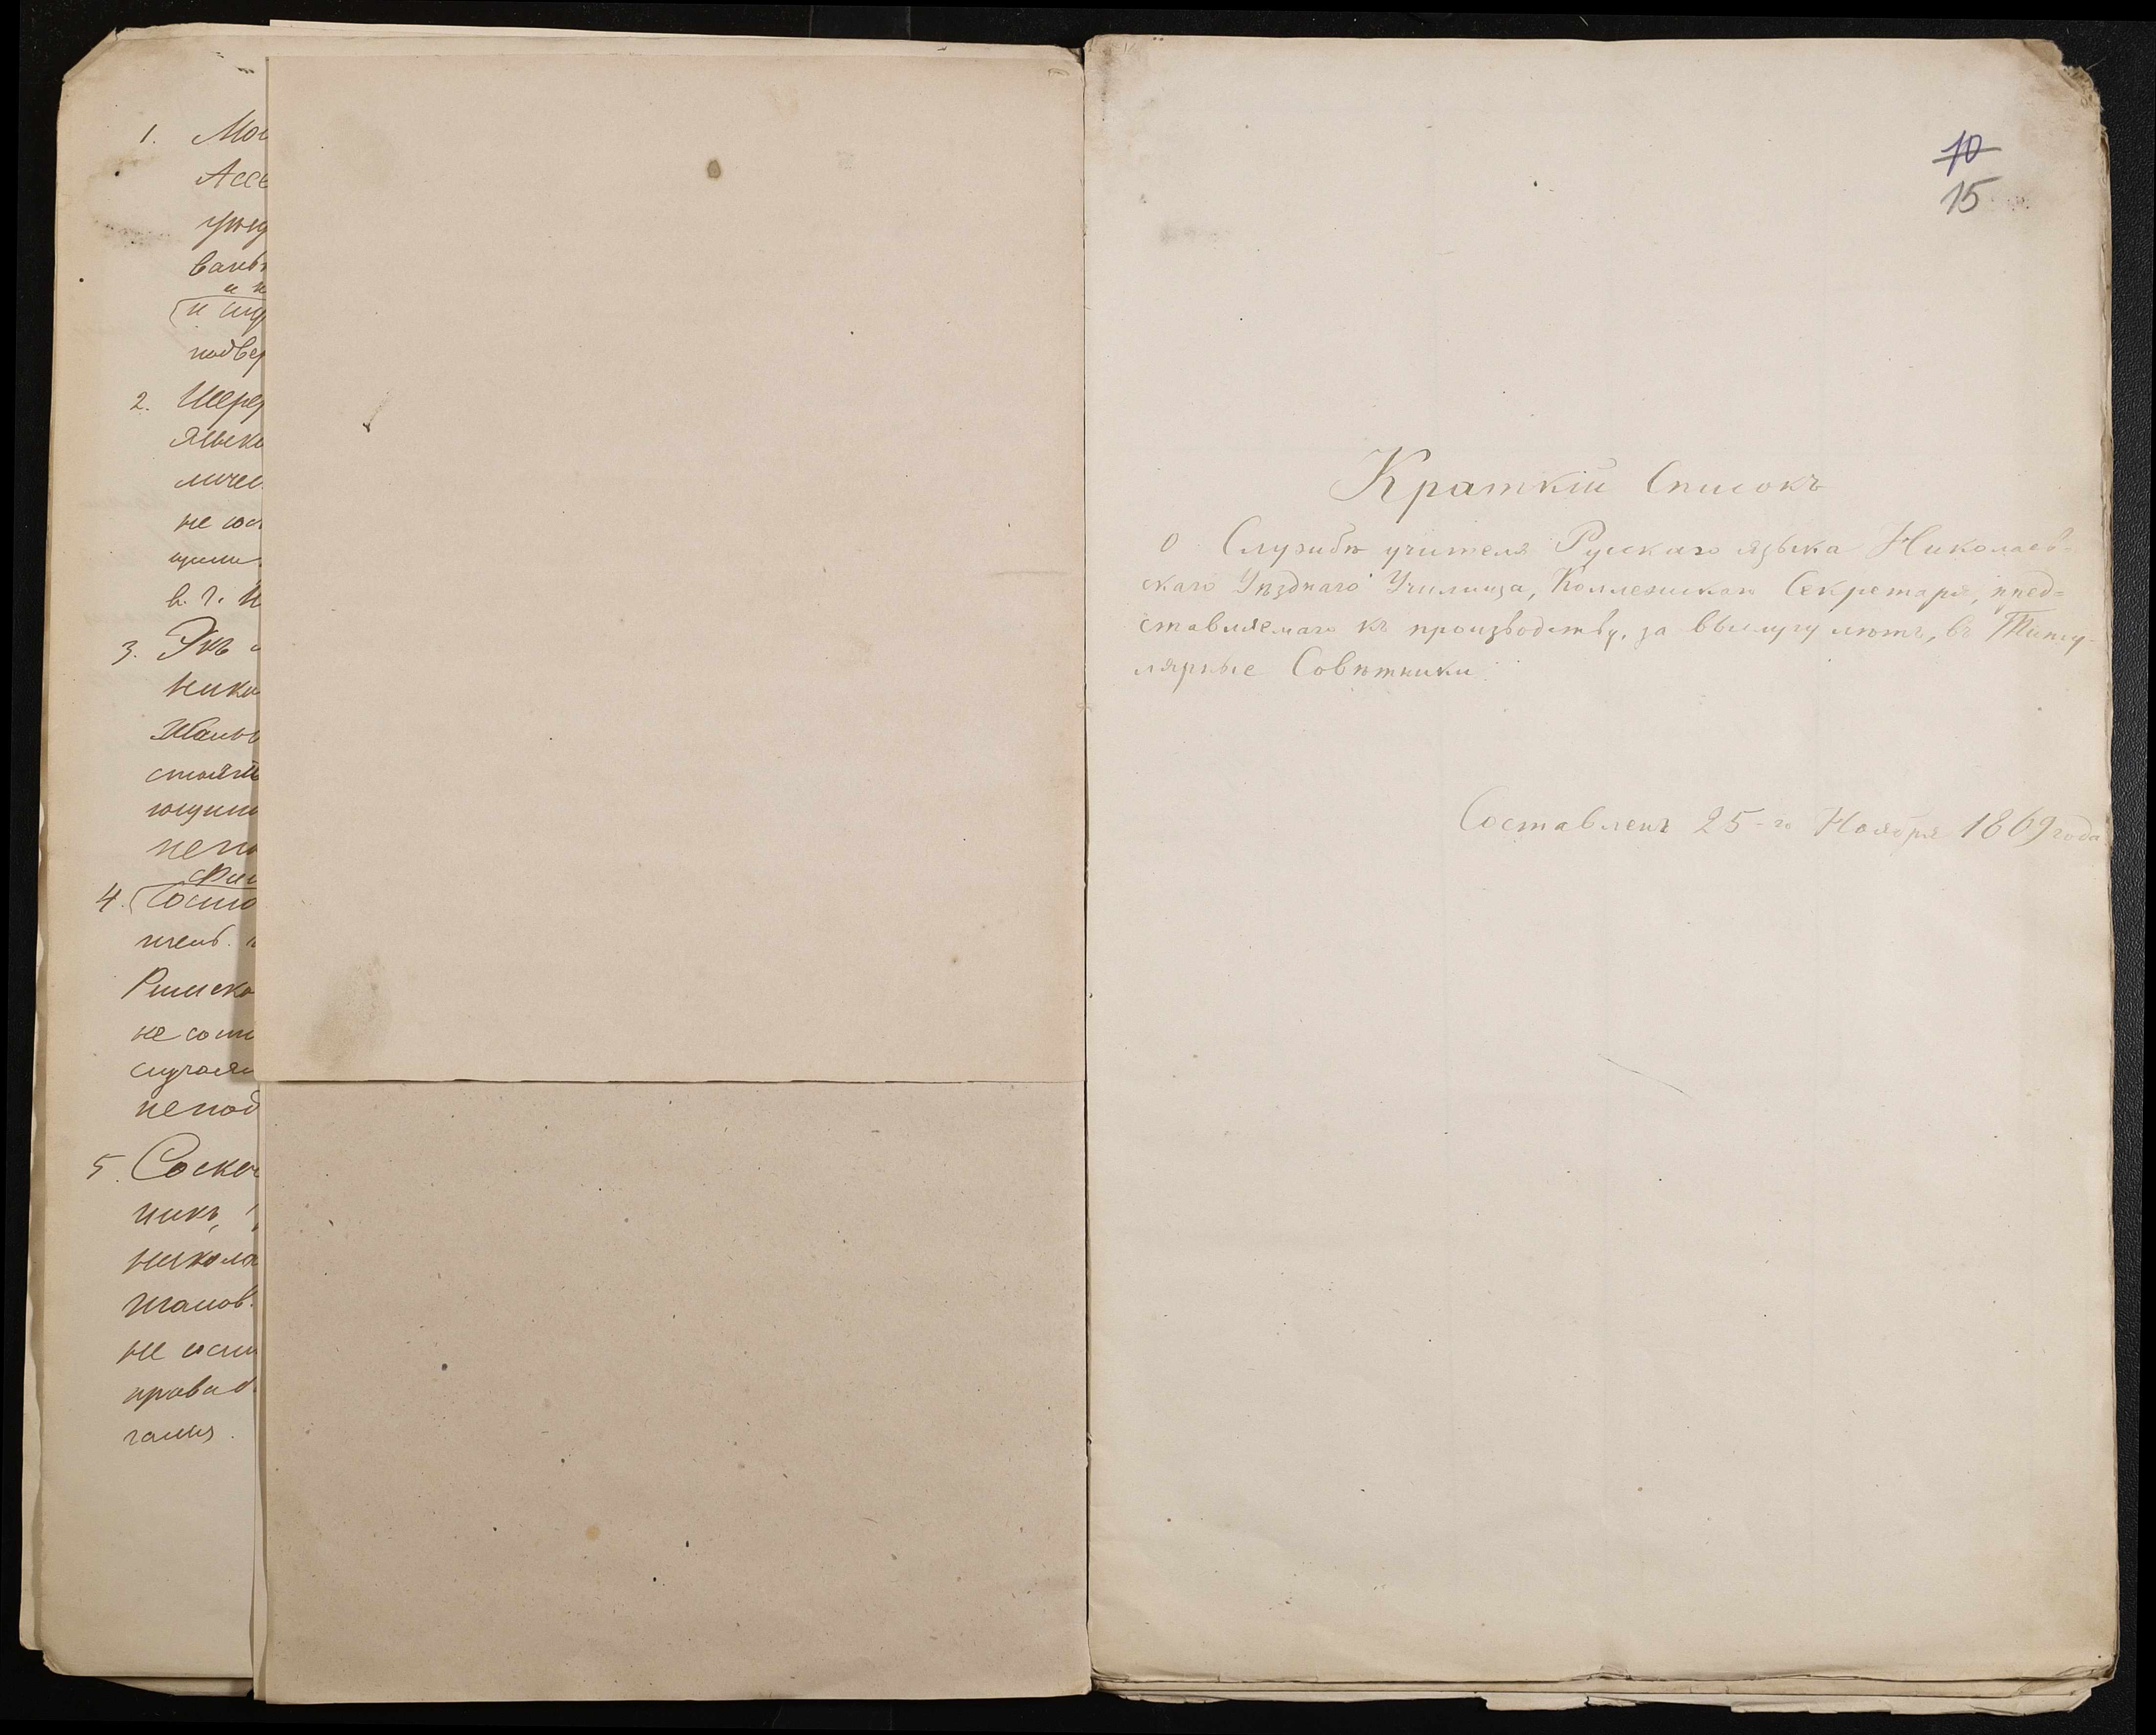 1. Мос
Ассе
уѣзд
вань
и н
(и слу
подвер
2. Шеред
Языко
личес
не сос
щими
в. г. н
3. Экъ
Нико
Шано
стоятъ
ющими
непо
4. (Состо
тель.
Римско
не состо
случаям
непод
5. Соско
никъ,
Никола
Шанов.
не состо
правад
гаших.
10
15
Краткій Списокъ
О Службѣ учителя Русскаго языка Николаев-
скаго Уѣзднаго Училища, Коллежскаго Секретаря, пред=
ставляемаго къ производству, за выслугу лѣтъ, въ Титу-
лярные Совѣтники.
Составленъ 25-го Ноября 1869 года